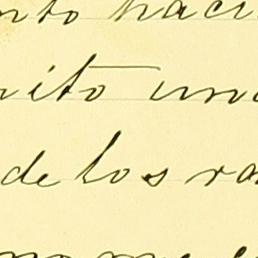 nto haci
rito una
de los ra